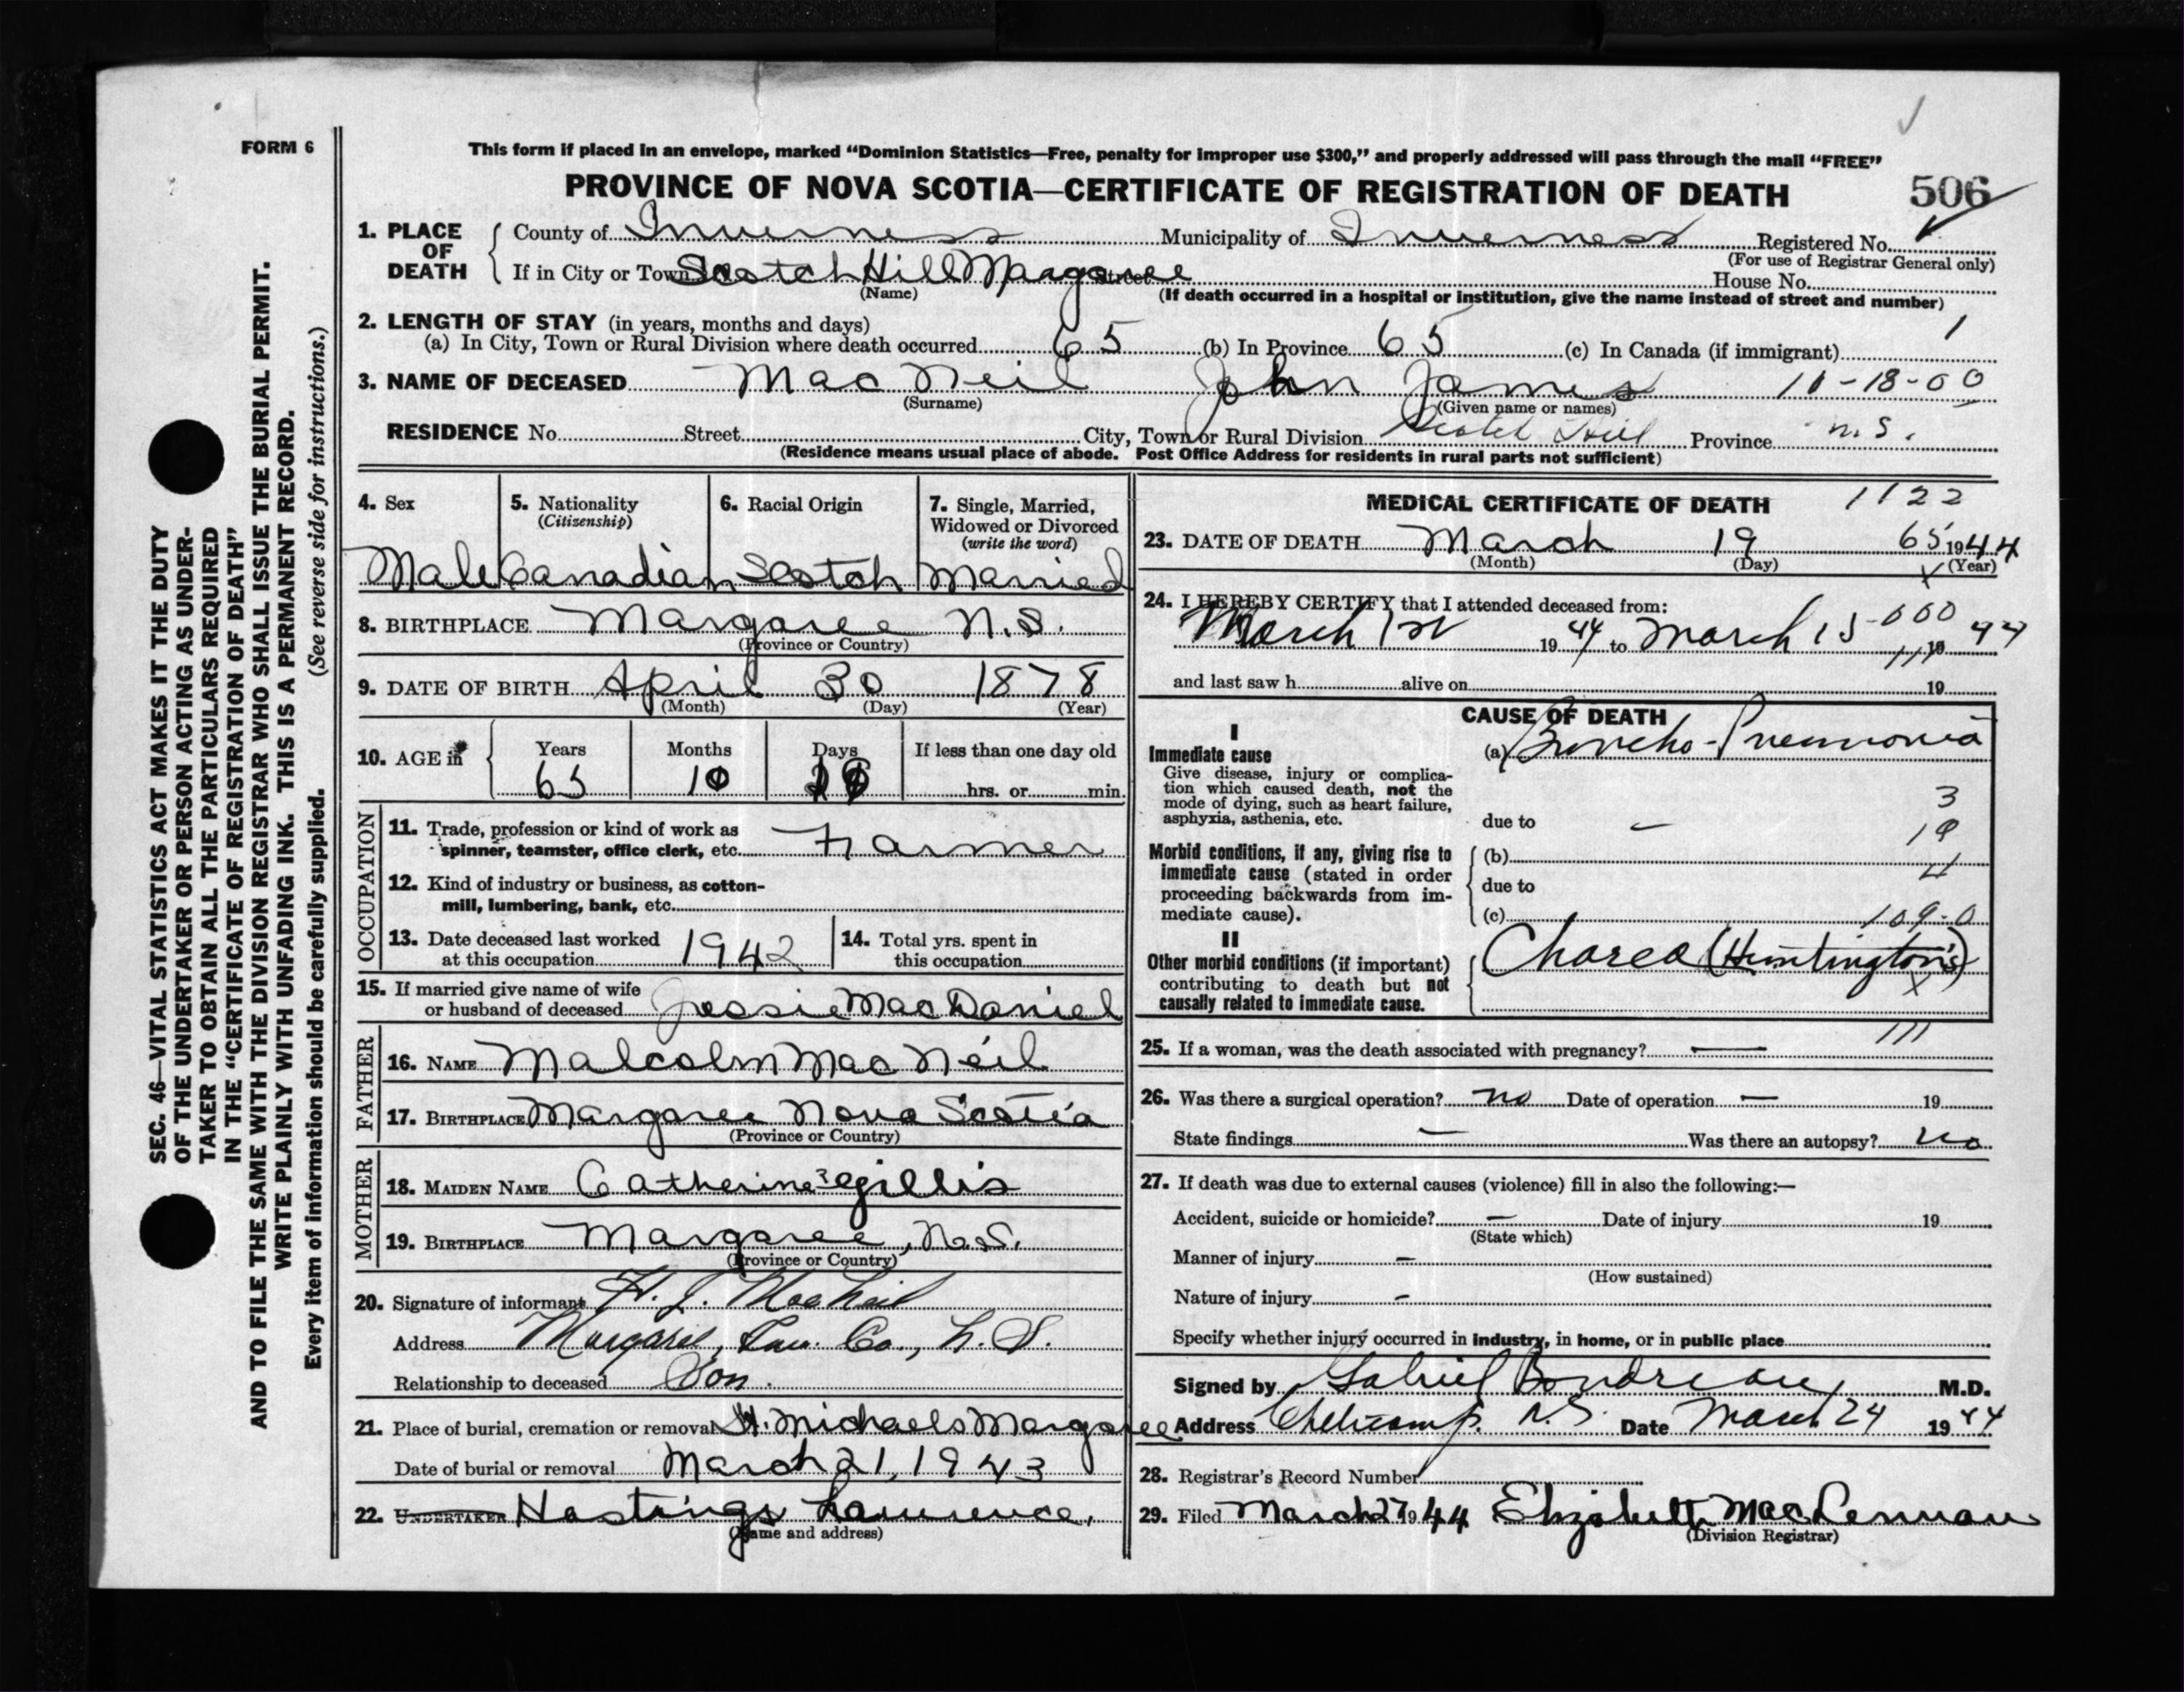 FORM 6
This form if placed in an envelope, marked "Dominion Statistics—Free, penalty for improper use $300," and properly addressed will pass through the mail "FREE"
PROVINCE OF NOVA SCOTIA—CERTIFICATE OF REGISTRATION OF DEATH 506
1. PLACE OF DEATH County of Inverness Municipality of Inverness Registered No.
(For use of Registrar General only)
If in City or Town Scotch Hill Margaree Street House No.
(Name) (If death occurred in a hospital or institution, give the name instead of street and number)
2. LENGTH OF STAY (in years, months and days) 1
(a) In City, Town or Rural Division where death occurred 65 (b) In Province 65 (c) In Canada (if immigrant)
3. NAME OF DECEASED Mac Neil John James 10-18-00
(Surname) (Given name or names)
RESIDENCE No. Street City, Town or Rural Division Scotch Hill Province N.S.
(Residence means usual place of abode. Post Office Address for residents in rural parts not sufficient)
4. Sex 5. Nationality (Citizenship) 6. Racial Origin 7. Single, Married, Widowed or Divorced (write the word)
Male Canadian Scotch Married
8. BIRTHPLACE Margaree N.S.
(Province or Country)
9. DATE OF BIRTH April 30 1878
(Month) (Day) (Year)
10. AGE in Years Months Days If less than one day old
65 10 hrs. or min.
OCCUPATION
11. Trade, profession or kind of work as
spinner, teamster, office clerk, etc. Farmer
12. Kind of industry or business, as cotton-
mill, lumbering, bank, etc.
13. Date deceased last worked
at this occupation 1942
14. Total yrs. spent in
this occupation
15. If married give name of wife
or husband of deceased Jessie MacDaniel
FATHER
16. NAME Malcolm Mac Neil
17. BIRTHPLACE Margaree Nova Scotia
(Province or Country)
MOTHER
18. MAIDEN NAME Catherine Gillis
19. BIRTHPLACE Margaree, N.S.
(Province or Country)
20. Signature of informant H. J. MacNeil
Address Margaree, Inv. Co., N.S.
Relationship to deceased Son.
21. Place of burial, cremation or removal St. Michaels Margaree
Date of burial or removal March 21, 1943
22. UNDERTAKER Hastings Lawrence,
(Name and address)
MEDICAL CERTIFICATE OF DEATH 1122
23. DATE OF DEATH March 19 65 1944
(Month) (Day) (Year)
24. I HEREBY CERTIFY that I attended deceased from:
March 1st 1944 to March 15 -000 1944
and last saw h alive on 19
CAUSE OF DEATH
I
Immediate cause (a) Broncho-Pneumonia
Give disease, injury or complica-
tion which caused death, not the
mode of dying, such as heart failure,
asphyxia, asthenia, etc.
3
due to —
19
Morbid conditions, if any, giving rise to
immediate cause (stated in order
proceeding backwards from im-
mediate cause).
(b)
4
due to
(c) 109-0
II
Other morbid conditions (if important)
contributing to death but not
causally related to immediate cause.
Chorea (Huntington's)
X
111
25. If a woman, was the death associated with pregnancy? —
26. Was there a surgical operation? no Date of operation — 19
State findings — Was there an autopsy? no
27. If death was due to external causes (violence) fill in also the following:—
Accident, suicide or homicide? — Date of injury 19
(State which)
Manner of injury -
(How sustained)
Nature of injury -
Specify whether injury occurred in industry, in home, or in public place
Signed by Gabriel Boudreau M.D.
Address Cheticamp. N.S. Date March 24 1944
28. Registrar's Record Number
29. Filed March 27 1944 Elizabeth MacLennan
(Division Registrar)
SEC. 46—VITAL STATISTICS ACT MAKES IT THE DUTY
OF THE UNDERTAKER OR PERSON ACTING AS UNDER-
TAKER TO OBTAIN ALL THE PARTICULARS REQUIRED
IN THE "CERTIFICATE OF REGISTRATION OF DEATH"
AND TO FILE THE SAME WITH THE DIVISION REGISTRAR WHO SHALL ISSUE THE BURIAL PERMIT.
WRITE PLAINLY WITH UNFADING INK. THIS IS A PERMANENT RECORD.
Every item of information should be carefully supplied. (See reverse side for instructions.)